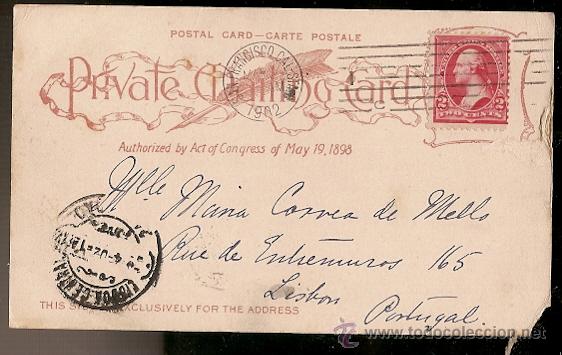 POSTAL CARD—CARTE POSTALE
Private Mailing Card
SAN FRANCISCO, CAL.
1902
2 2
TWO CENTS
Authorized by Act of Congress of May 19, 1898
Mlle Maria Correa de Mello
Rue de Entremuros 165
Lisbon
Portugal.
LISBOA CENTRAL
THIS SIDE EXCLUSIVELY FOR THE ADDRESS
todocoleccion.net